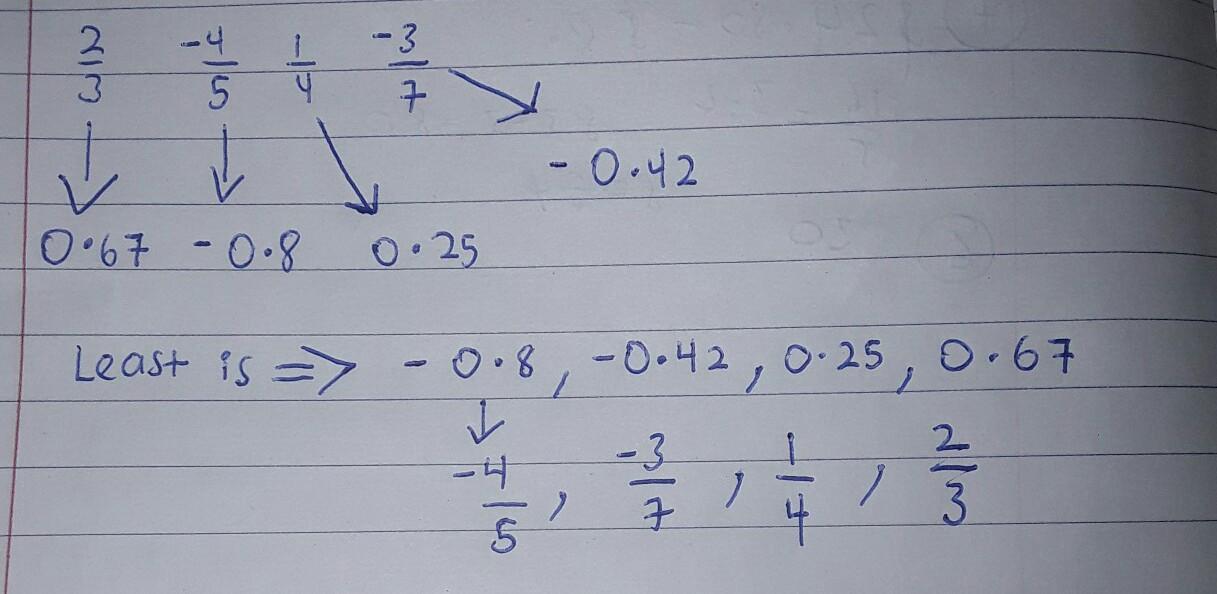 2/3 -4/5 1/4 -3/7
- 0.42
0.67 - 0.8 0.25
Least is => - 0.8, -0.42, 0.25, 0.67
-4/5, -3/7, 1/4, 2/3